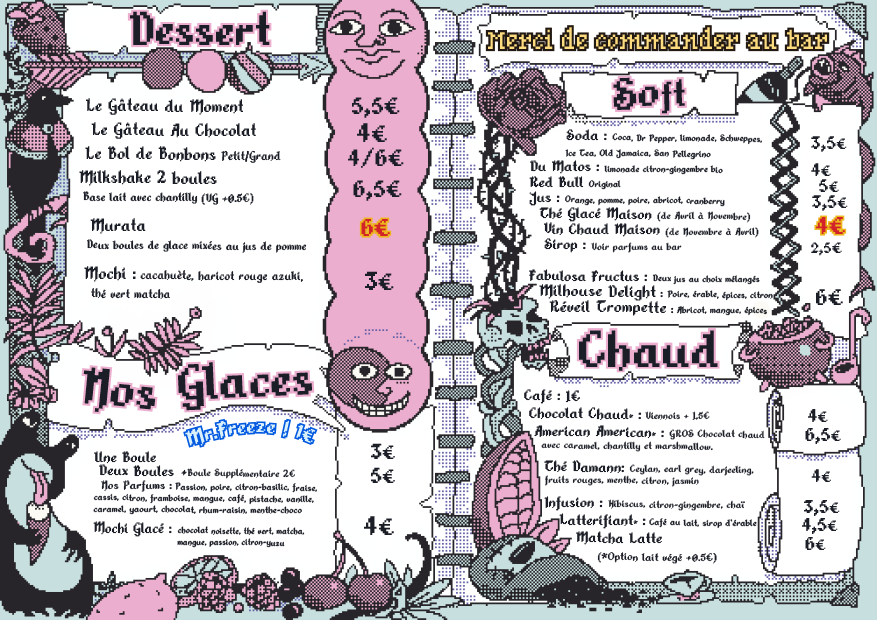 Dessert
Le Gâteau du Moment 5,5€
Le Gâteau Au Chocolat 4€
Le Bol de Bonbons Petit/Grand 4/6€
Milkshake 2 boules 6,5€
Base lait avec chantilly (VG +0.5€)
Murata 6€
Deux boules de glace mixées au jus de pomme
Mochi : cacahuète, haricot rouge azuki, 3€
thé vert matcha
Nos Glaces
Mr.Freeze ! 1€
Une Boule 3€
Deux Boules +Boule Supplémentaire 2€ 5€
Nos Parfums : Passion, poire, citron-basilic, fraise,
cassis, citron, framboise, mangue, café, pistache, vanille,
caramel, yaourt, chocolat, rhum-raisin, menthe-choco
Mochi Glacé : chocolat noisette, thé vert, matcha, 4€
mangue, passion, citron-yuzu
Merci de commander au bar
Soft
Soda : Coca, Dr Pepper, limonade, Schweppes, 3,5€
Ice Tea, Old Jamaica, San Pellegrino
Du Matos : limonade citron-gingembre bio 4€
Red Bull Original 5€
Jus : Orange, pomme, poire, abricot, cranberry 3,5€
Thé Glacé Maison (de Avril à Novembre)
Vin Chaud Maison (de Novembre à Avril) 4€
Sirop : Voir parfums au bar 2,5€
Fabulosa Fructus : Deux jus au choix mélangés
Milhouse Delight : Poire, érable, épices, citron 6€
Réveil Trompette : Abricot, mangue, épices
Chaud
Café : 1€
Chocolat Chaud* : Viennois + 1,5€ 4€
American American* : GROS Chocolat chaud 6,5€
avec caramel, chantilly et marshmallow.
Thé Damann: Ceylan, earl grey, darjeeling, 4€
fruits rouges, menthe, citron, jasmin
Infusion : Hibiscus, citron-gingembre, chaï 3,5€
Latterifiant* : Café au lait, sirop d'érable 4,5€
Matcha Latte 6€
(*Option lait végé +0.5€)